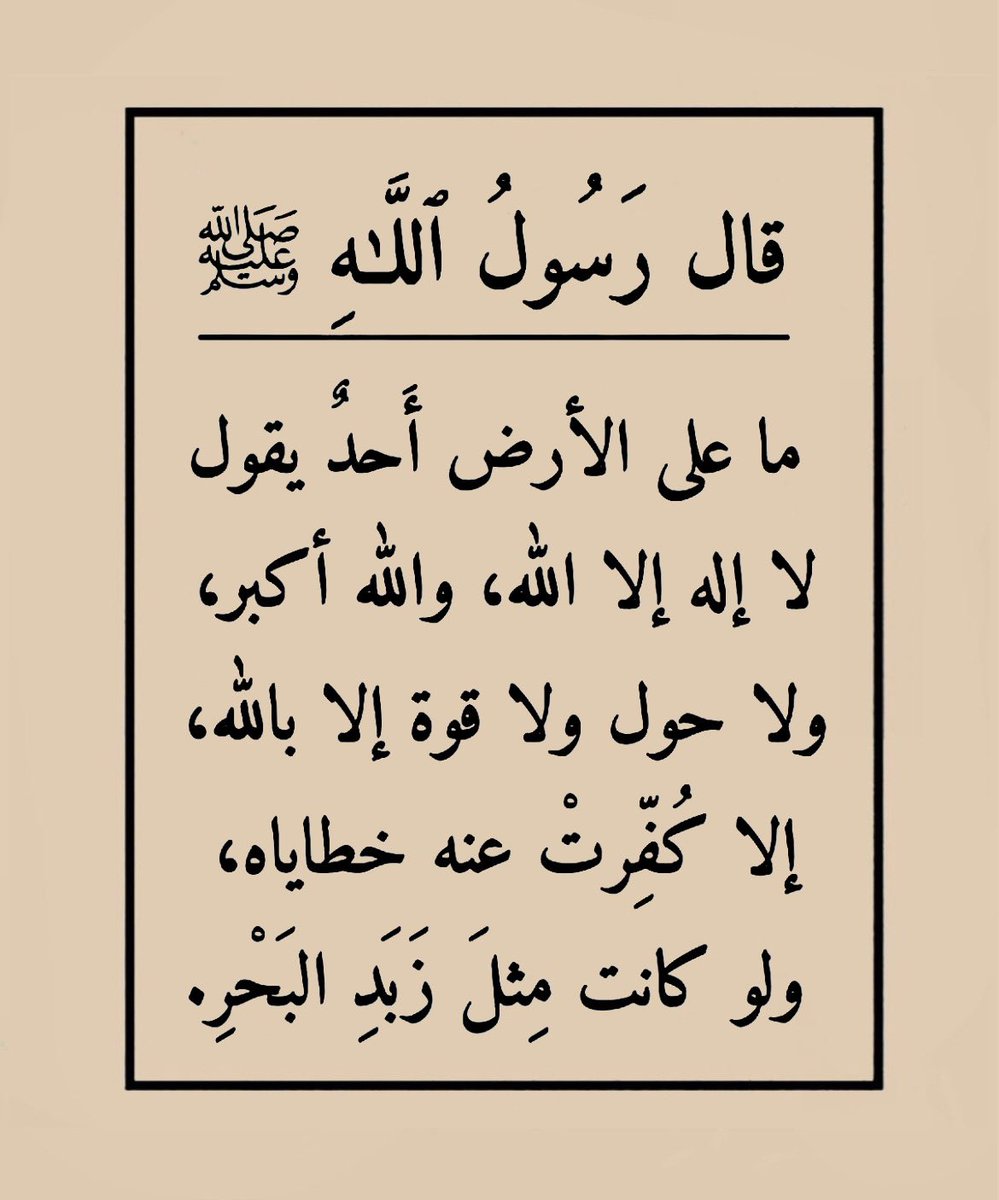 قال رَسُولُ ٱللَّـٰهِ ﷺ
ما على الأرض أَحدٌ يقول
لا إله إلا الله، والله أكبر،
ولا حول ولا قوة إلا بالله،
إلا كُفِّرتْ عنه خطاياه،
ولو كانت مِثلَ زَبَدِ البَحْرِ.